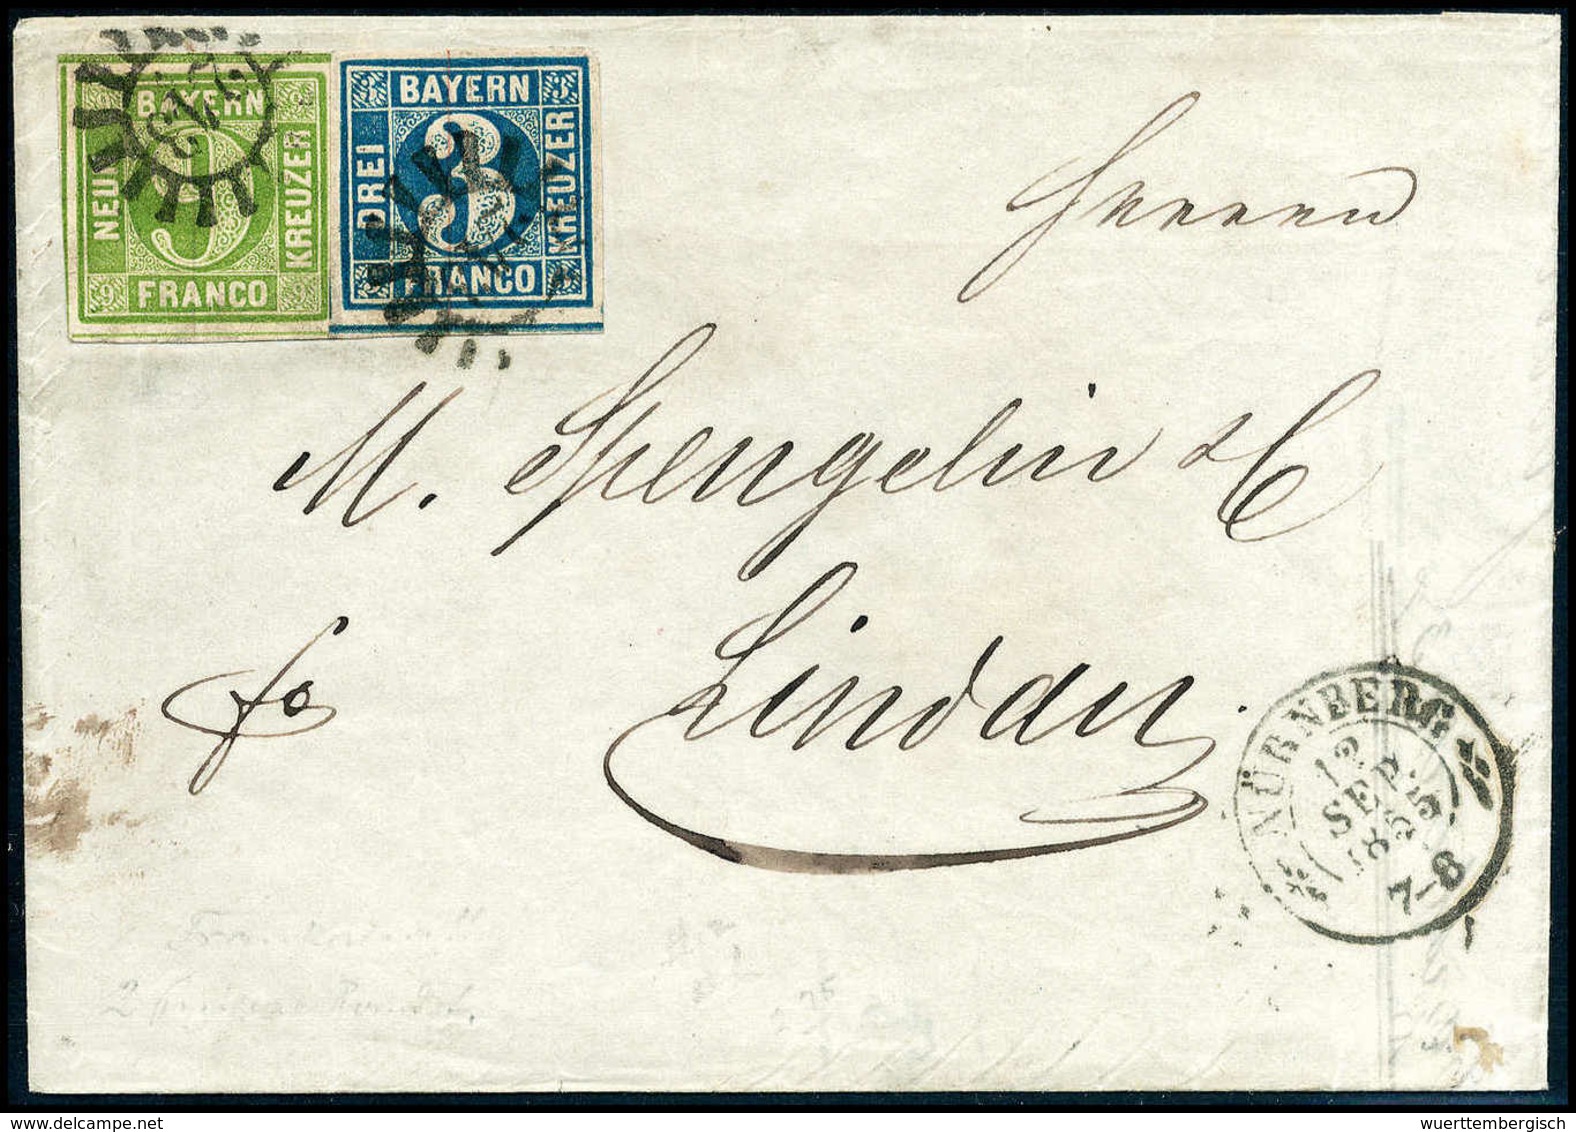 BAYERN
NEUN
KREUZER
FRANCO
9 9 9
BAYERN
3 3
DREI
3
KREUZER
FRANCO
Herren
M. Spengelin & C
fo
Lindau.
NÜRNBERG
12
SEP.
186
7-8
© www.delcampe.net
wuerttembergisch